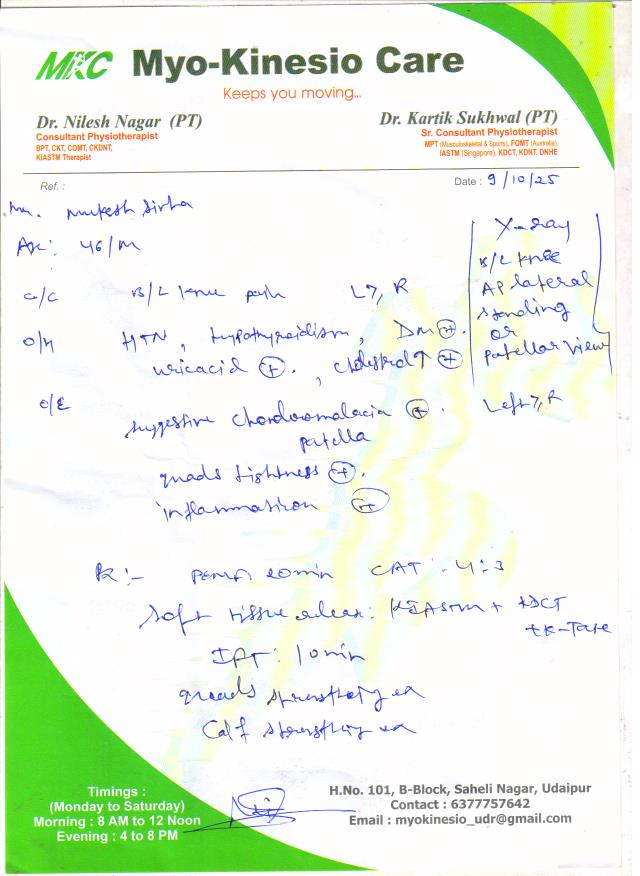 MKC Myo-Kinesio Care
Keeps you moving...
Dr. Nilesh Nagar (PT)
Consultant Physiotherapist
BPT, CKT, COMT, CKDNT,
KIASTM Therapist
Dr. Kartik Sukhwal (PT)
Sr. Consultant Physiotherapist
MPT (Musculoskeletal & Sports), FOMT (Australia),
IASTM (Singapore), KDCT, KDNT, DNHE
Ref. :
Date : 9/10/25
Mr. Mukesh
46/M
C/C B/L Knee pain L>, R
O/H HTN, hypothyroidism, DM (+).
uricacid (+). , cholestrol↑ (+)
X-ray
B/L Knee
AP lateral
standing
or
patellar view
O/E suggestive Chondromalacia (+). Left>, R
patella
quads tightness (+).
inflammation (+)
Rx :- PEMF: 20min CAT : 4:3
Soft tissue release: KIASTM + KDCT
+ K-Tape
IFT: 10min
quads
Calf
Timings :
(Monday to Saturday)
Morning : 8 AM to 12 Noon
Evening : 4 to 8 PM
H.No. 101, B-Block, Saheli Nagar, Udaipur
Contact : 6377757642
Email : myokinesio_udr@gmail.com